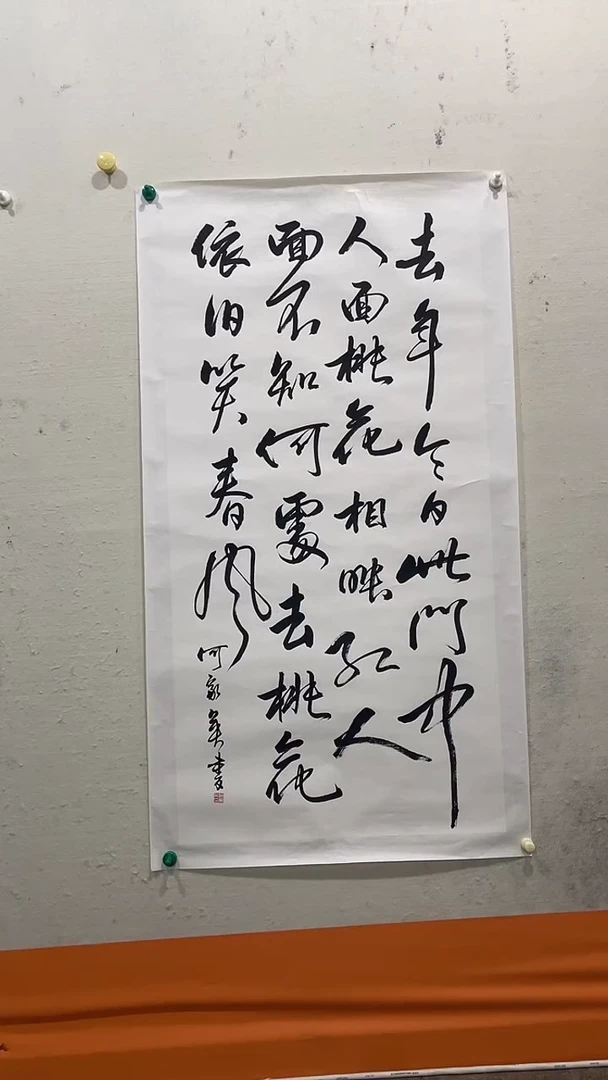 去年今日此門中
人面桃花相映紅人
面不知何處去桃花
依旧笑春風
何家書